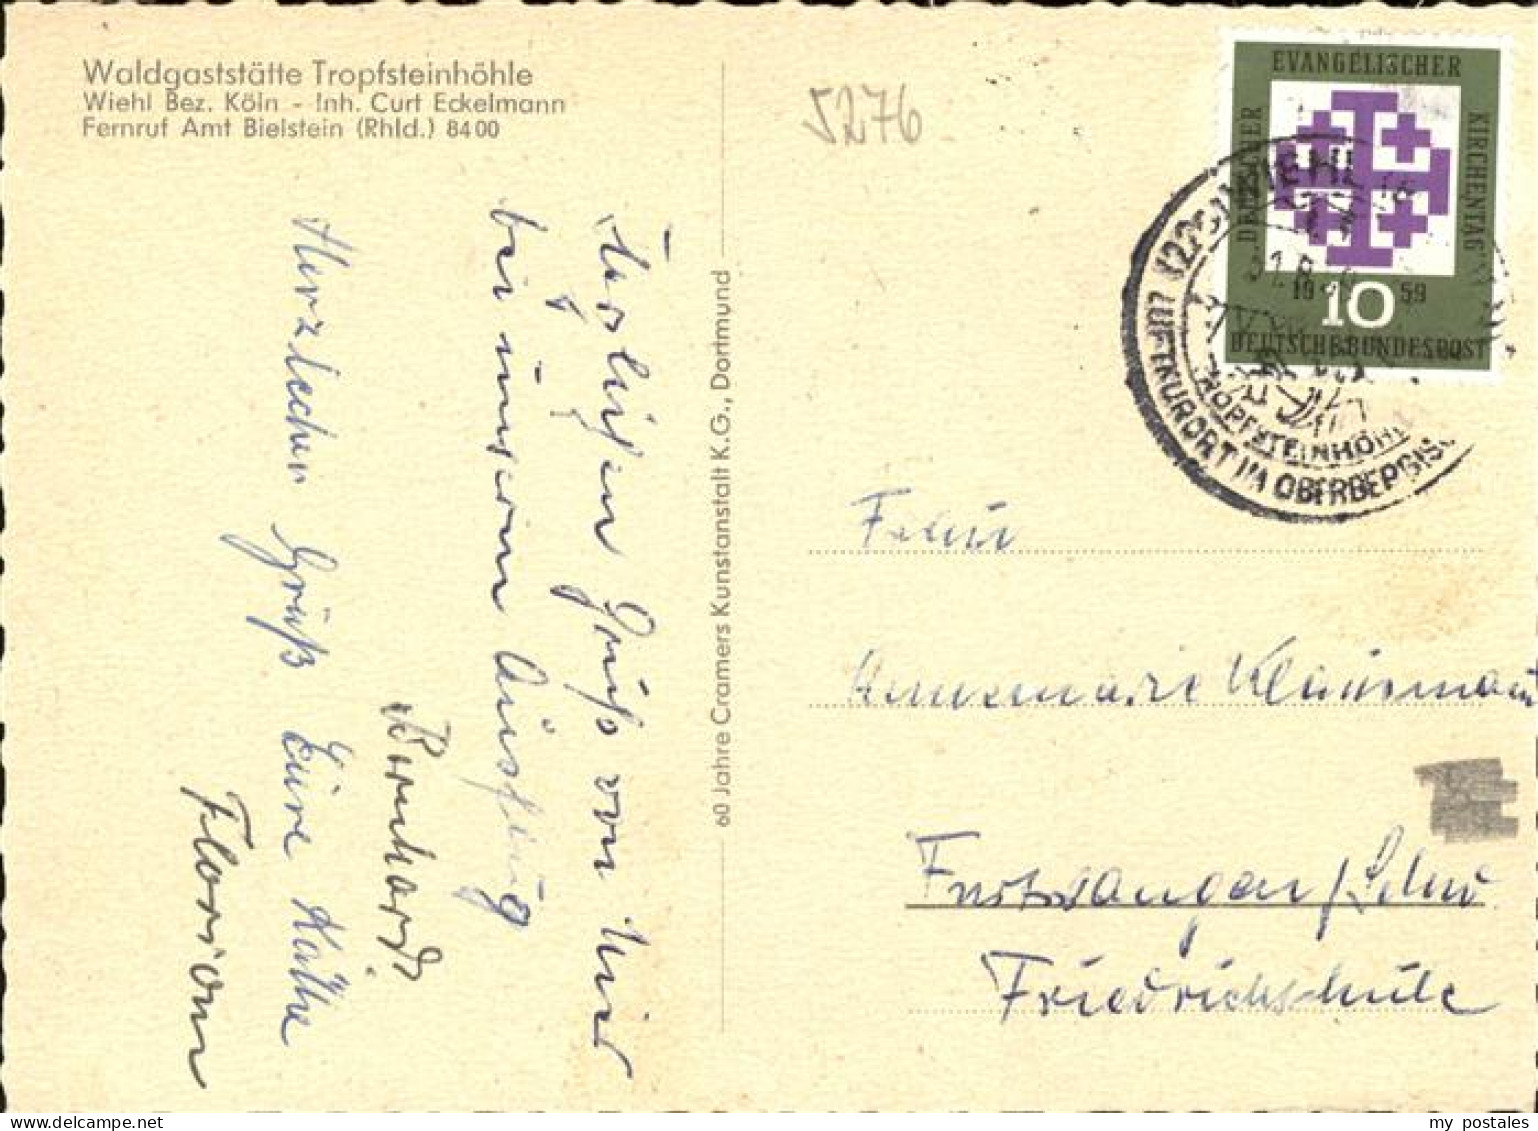 Waldgaststätte Tropfsteinhöhle
Wiehl Bez. Köln - Inh. Curt Eckelmann
Fernruf Amt Bielstein (Rhld.) 8400
5276
Herzlichen Gruß von
bei unserem Ausflug
Bernhard
Herzlichen Gruß Eure Käthe
Florian
60 Jahre Cramers Kunstanstalt K.G., Dortmund
DEUTSCHER
EVANGELISCHER
KIRCHENTAG
19 59
10
DEUTSCHE BUNDESPOST
(22c) WIEHL
TROPFSTEINHÖHLE
LUFTKURORT IM OBERBERGISCH
Frau
Annemarie Klausmann
Furtwangen / Schw
Friedrichschule
my postales